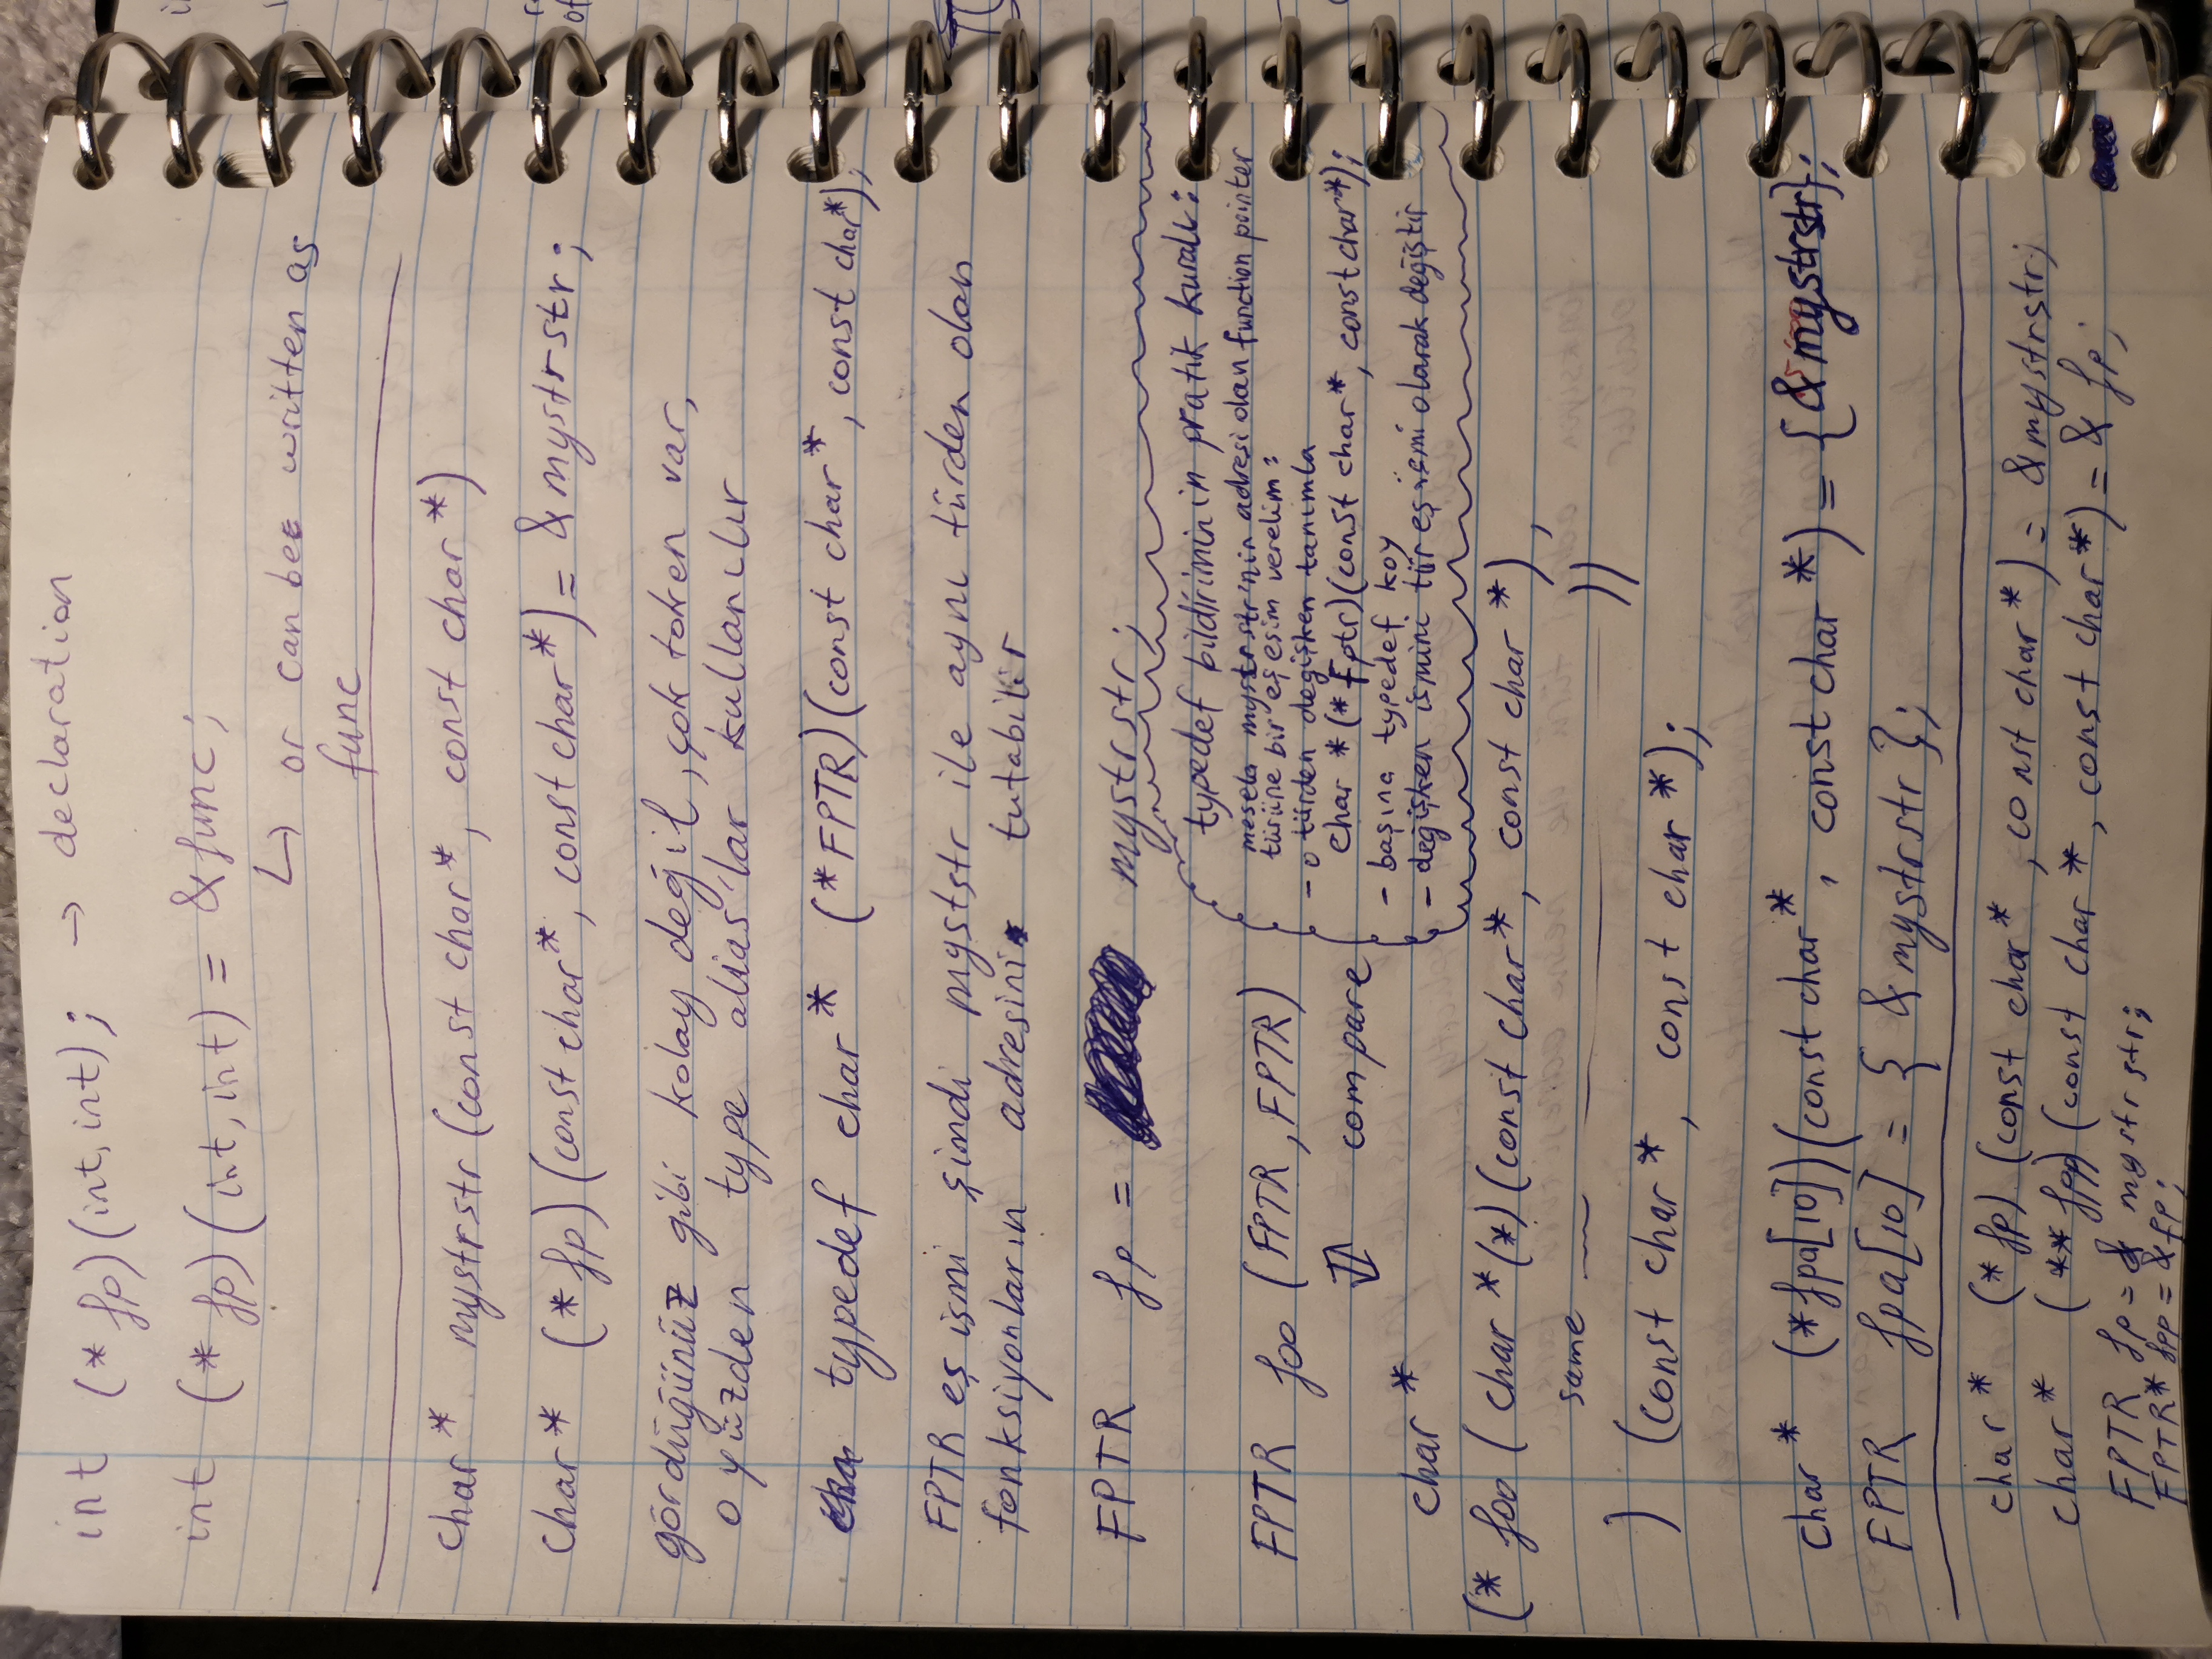 int (* fp)(int, int); → declaration
int (* fp)(int, int) = &func;
↳ or can bee written as
func
char* mystrstr (const char*, const char*)
char* (*fp)(const char*, const char*) = &mystrstr;
gördüğünüz gibi kolay değil, çok token var,
o yüzden type alias'lar kullanılır
typedef char* (*FPTR)(const char*, const char*);
FPTR eş ismi şimdi mystrstr ile aynı türden olan
fonksiyonların adresini tutabilir
FPTR fp = mystrstr;
typedef bildiriminin pratik kuralı:
mesela mystrstr'nin adresi olan function pointer
türüne bir eş esim verelim:
- o türden değişken tanımla
char *(*Fptr)(const char*, const char*);
- başına typedef koy
- değişken ismini tür eş ismi olarak değiştir
FPTR foo (FPTR, FPTR)
⇕ compare
char *
(* foo ( char *(*)(const char*, const char *),
same ))
) (const char *, const char *);
char * (*fpa[10])(const char*, const char *) = {&mystrstr};
FPTR fpa[10] = { &mystrstr };
char * (*fp) (const char*, const char*) = &mystrstr;
char * (**fpp)(const char *, const char*) = & fp;
FPTR fp = & mystrstr;
FPTR* fpp = &fp;